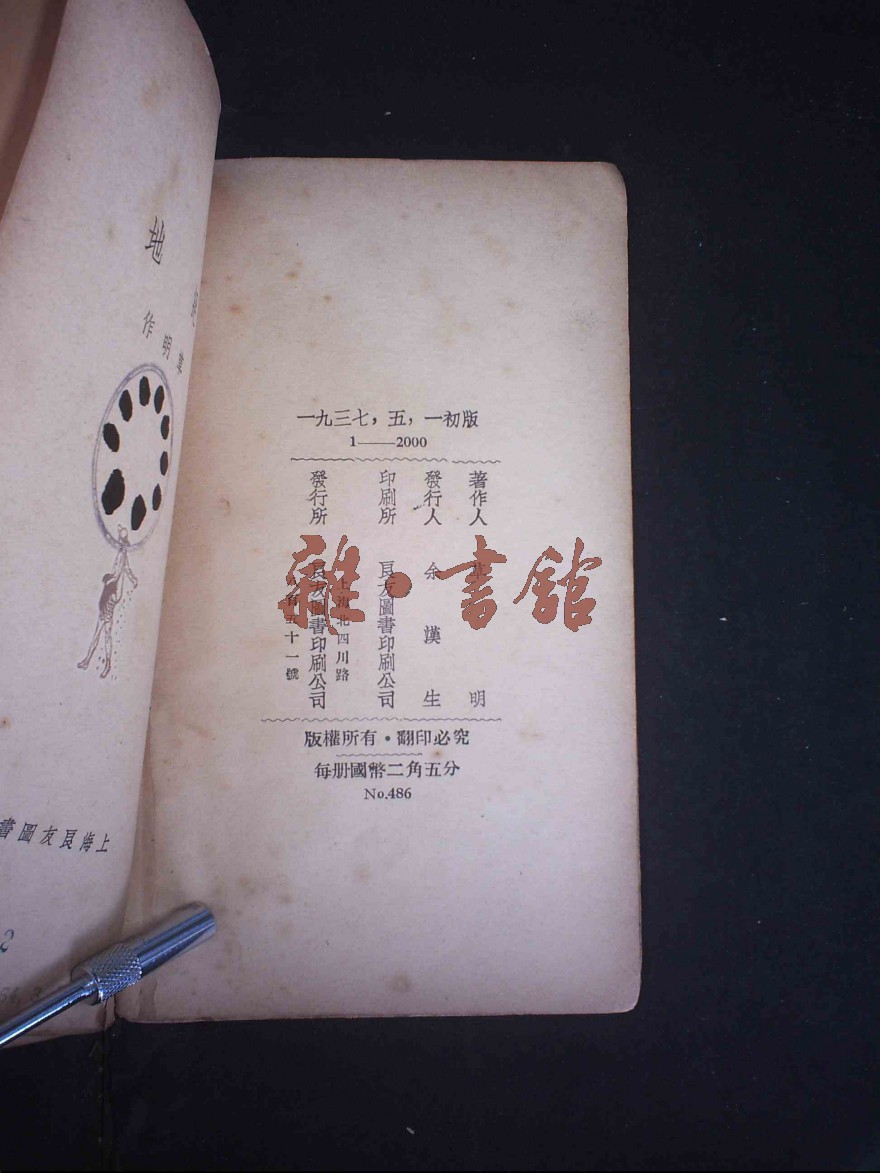 一九三七，五，一初版
1——2000
著作人 草明
發行人 余漢生
印刷所 良友圖書印刷公司
上海北四川路
發行所 良友圖書印刷公司
百五十一號
版權所有·翻印必究
每册國幣二角五分
No.486
雜·書館
地
草明作
上海良友圖書
2